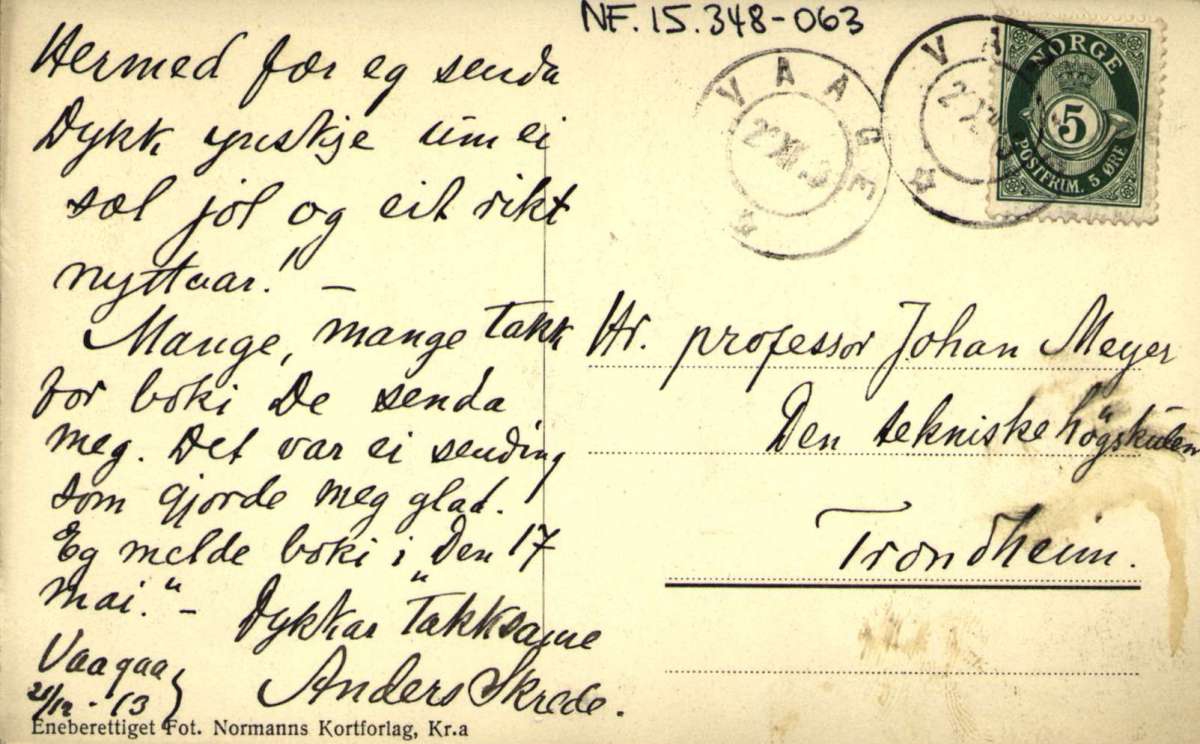 NF.15.348-063
Hermed fær eg senda
Dykk ynskje um ei
sæl jol og eit rikt
nyttaar! –
Mange, mange takk
for boki De senda
meg. Det var ei sending
som gjorde meg glad.
Eg melde boki i „Den 17
mai.“ –
Dykkar takksame
Anders Skrede.
Vaagaa
21/12 - 13
Eneberettiget Fot. Normanns Kortforlag, Kr.a
VAAGE
VA
NORGE
5
POSTFRIM. 5 ØRE
Hr. professor Johan Meyer
Den tekniske högskulen
Trondheim.